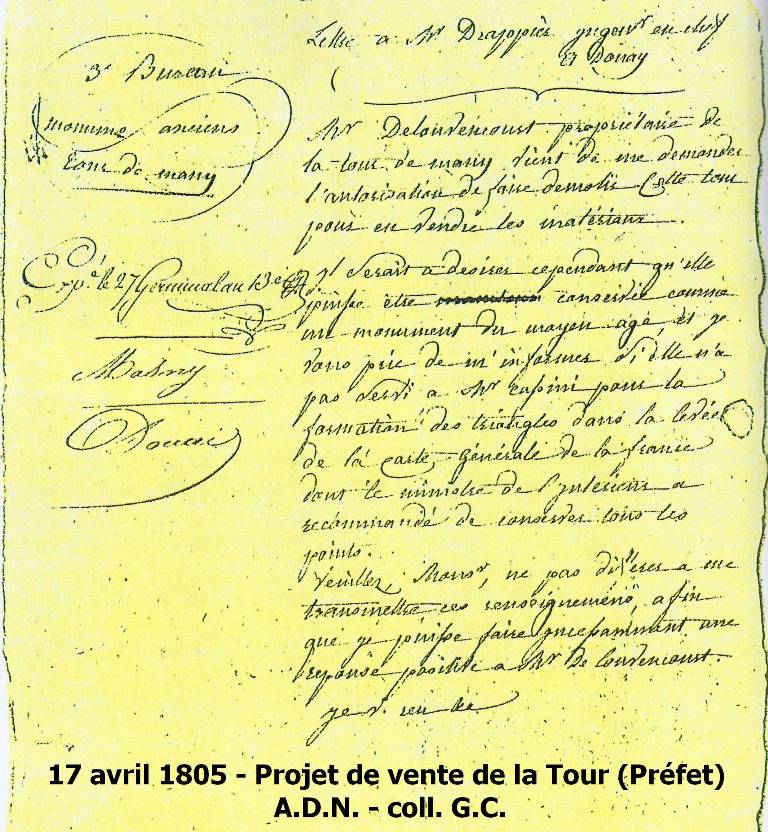 Lettre a Mr Drappier yngenr en chef
Et Douay
3e Bureau
monumens anciens
tour de many
Expé. le 27 Germinal an 13e
Masny
Douai
Mr Delouvencourt propriétaire de
la tour de many vient de me demander
l'autorisation de faire demolir Cette tour
pour en vendre les matériaux.
yl Serait a desirer cependant qu'elle
puisse être conservée comme
un monument du moyen age, Et je
vous prie de m'informer Si elle n'a
pas Servi a Mr Cassini pour la
formation des triangles dans la levée
de la Carte Générale de la france
dont le ministre de l'ynterieur a
recommandé de conserver tous les
points.
Veuillez, Monsr, ne pas différer a me
transmettre ces renseignemens, afin
que je puisse faire yncessamment une
reponse positive a Mr De Louvencourt.
je v.
17 avril 1805 - Projet de vente de la Tour (Préfet)
A.D.N. - coll. G.C.